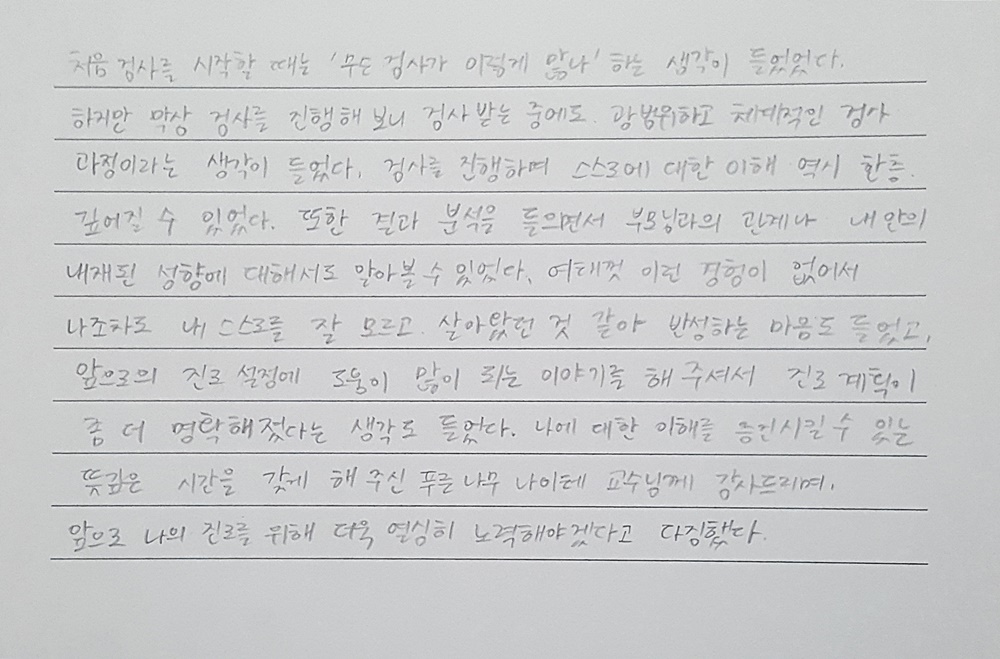 처음 검사를 시작할 때는 '무슨 검사가 이렇게 많나' 하는 생각이 들었었다.
하지만 막상 검사를 진행해 보니 검사 받는 중에도 광범위하고 체계적인 검사
과정이라는 생각이 들었다. 검사를 진행하며 스스로에 대한 이해 역시 한층
깊어질 수 있었다. 또한 결과 분석을 들으면서 부모님과의 관계나 내 안의
내재된 성향에 대해서도 알아볼 수 있었다. 여태껏 이런 경험이 없어서
나조차도 내 스스로를 잘 모르고 살아왔던 것 같아 반성하는 마음도 들었고,
앞으로의 진로 설정에 도움이 많이 되는 이야기를 해 주셔서 진로 계획이
좀 더 명확해졌다는 생각도 들었다. 나에 대한 이해를 증진시킬 수 있는
뜻깊은 시간을 갖게 해 주신 푸른나무 나이테 교수님께 감사드리며,
앞으로 나의 진로를 위해 더욱 열심히 노력해야겠다고 다짐했다.